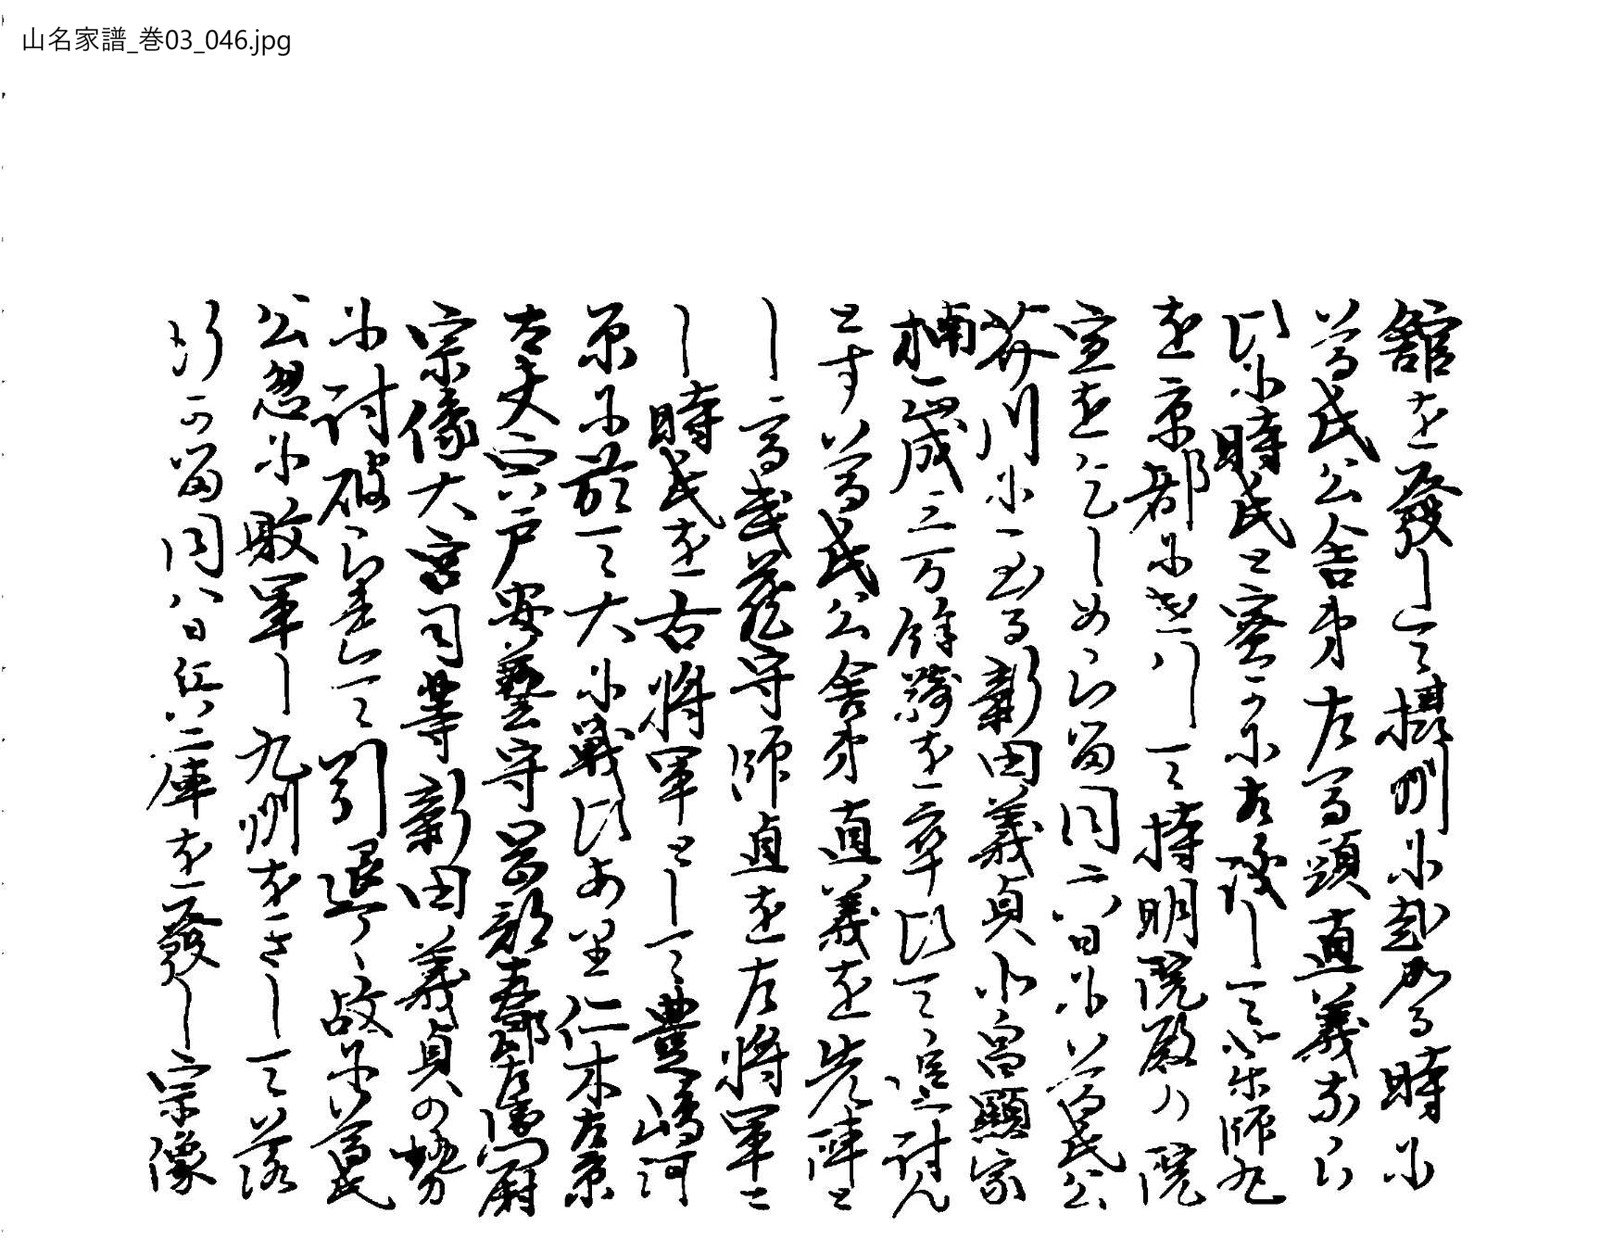 山名家譜_巻03_046.jpg
館を發して摂州に赴かる時に
尊氏公舎弟左馬頭直義ならひに
時氏と密かに相議して
を京都に 持明院殿の院
宣を乞しめらる同六日に尊氏公
芥川に至る新田義貞北畠顕家
楠正成三万餘騎を率ひて追討ん
とす尊氏公舎弟直義を先陣と
し高武蔵守師直を左将軍と
し時氏を右将軍として豊嶋河
原に於て大に戦ひあり仁木右京
大夫宍戸安藝守岡部春部左衛門尉
宗像大宮司等新田義貞の勢
に討破られて引退く故に尊氏
公忽に敗軍し九州をさして落
行る同八日 兵庫を發し宗像